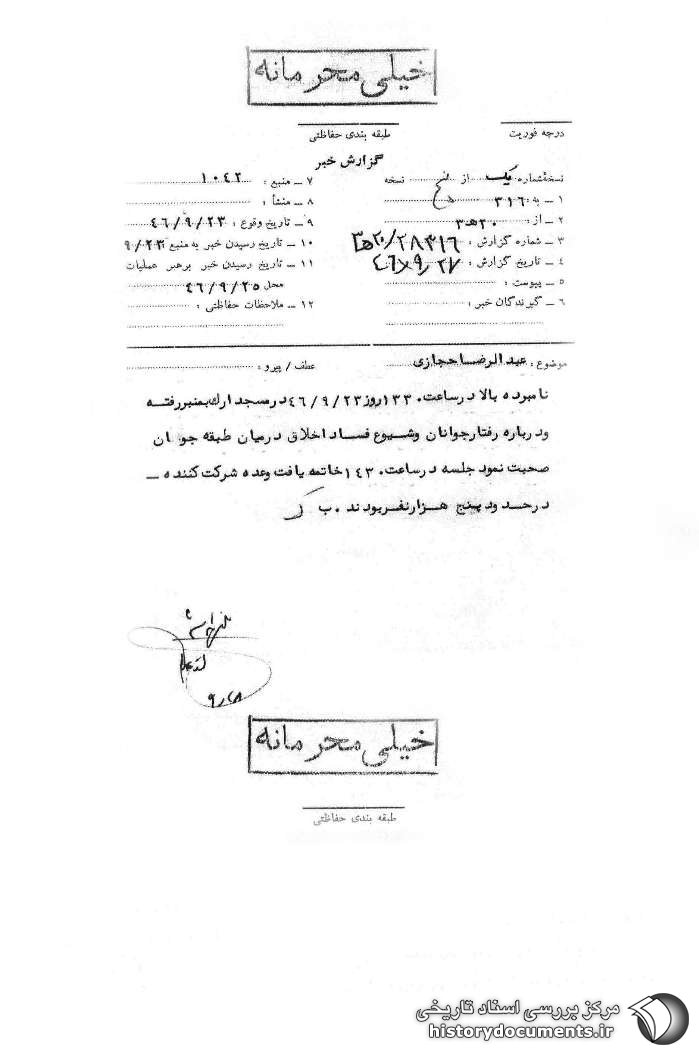 خیلی محرمانه
درجه فوریت
طبقه بندی حفاظتی
گزارش خبر
نسخهٔشماره یک از نسخه
۱ ــ به : ۳۱۶
۲ ــ از : ۲۰ ﻫ ۳
۳ ــ شماره گزارش : ۲۸۳۱۶/۲۰ﻫ۳
۴ ــ تاریخ گزارش : ۴۶/۹/۲۷
۵ ــ پیوست :
۶ ــ گیرندگان خبر :
۷ ــ منبع : ۱۰۴۲
۸ ــ منشأ :
۹ ــ تاریخ وقوع : ۴۶/۹/۲۳
۱۰ ــ تاریخ رسیدن خبر به منبع ۹/۲۳
۱۱ ــ تاریخ رسیدن خبر برهبر عملیات
محل ۴۶/۹/۲۵
۱۲ ــ ملاحظات حفاظتی :
موضوع : عبدالرضا حجازی
عطف / پیرو :
نامبرده بالا درساعت ۱۳۳۰ روز ۴۶/۹/۲۳ درمسجد ارک بمنبر رفته
ودرباره رفتارجوانان وشیوع فساد اخلاق درمیان طبقه جوان
صحبت نمود جلسه درساعت ۱۴۳۰ خاتمه یافت وعده شرکت کننده ــ
درحدود پنج هزارنفربودند . ب
۹/۲۸
خیلی محرمانه
طبقه بندی حفاظتی
مرکز بررسی اسناد تاریخی
historydocuments.ir